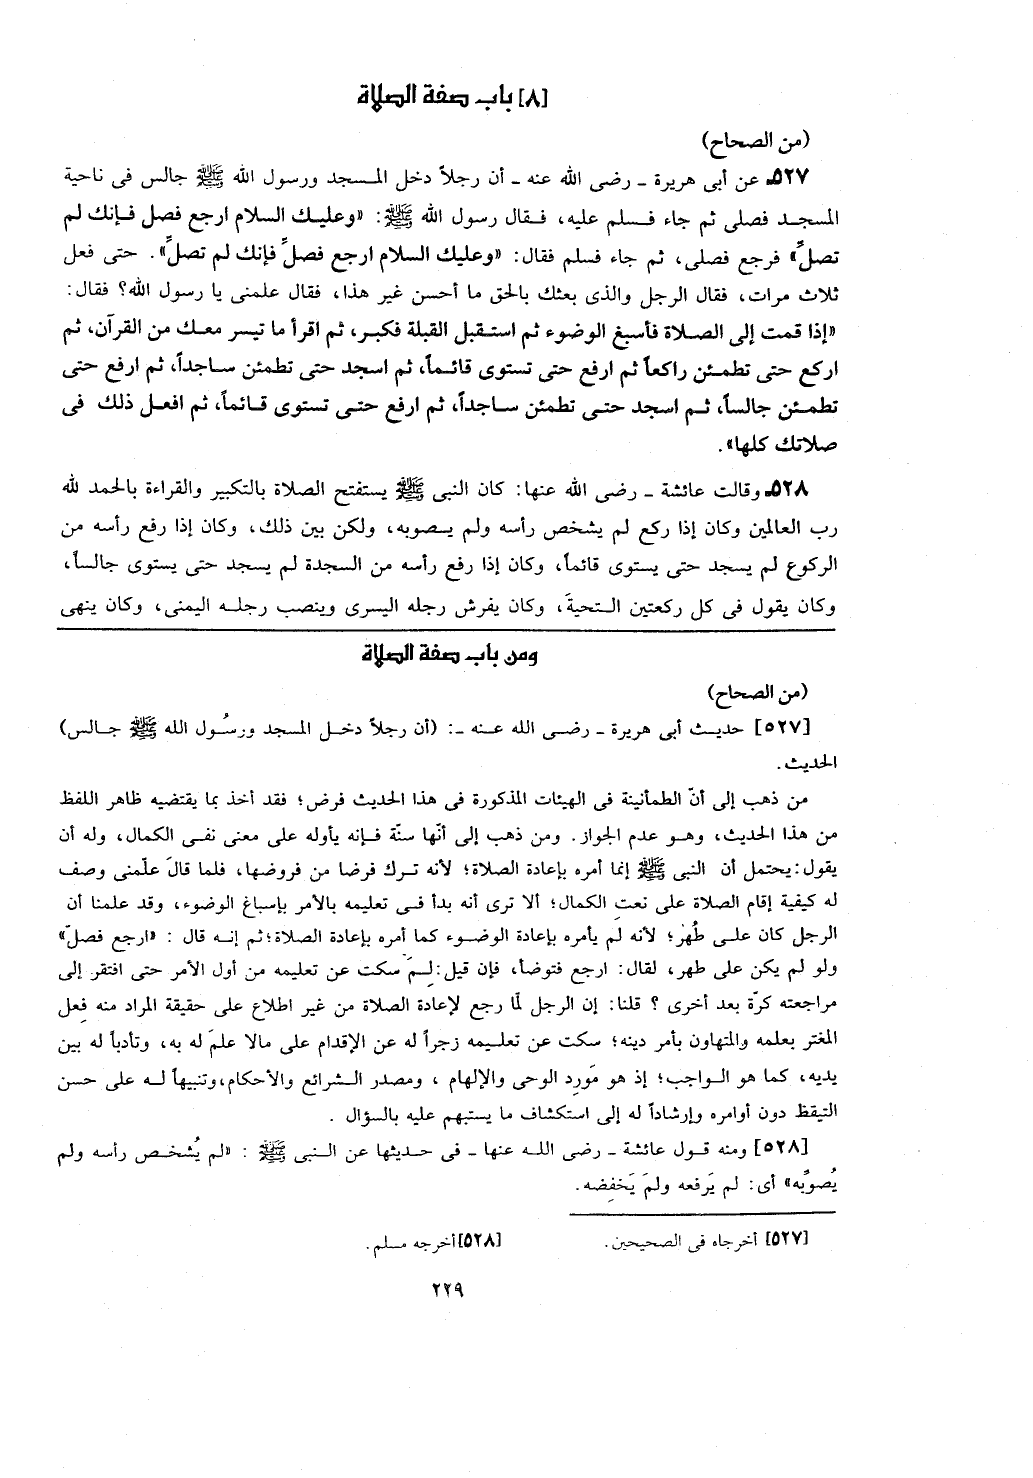 [٨] باب صفة الصلاة
(من الصحاح)
٥٢٧ـ عن أبى هريرة ـ رضى الله عنه ـ أن رجلاً دخل المسجد ورسول الله ﷺ جالس فى ناحية
المسجد فصلى ثم جاء فسلم عليه، فقال رسول الله ﷺ: «وعليك السلام ارجع فصل فإنك لم
تصلِّ» فرجع فصلى، ثم جاء فسلم فقال: «وعليك السلام ارجع فصلِّ فإنك لم تصلِّ». حتى فعل
ثلاث مرات، فقال الرجل والذى بعثك بالحق ما أحسن غير هذا، فقال علمنى يا رسول الله؟ فقال:
«إذا قمت إلى الصلاة فأسبغ الوضوء ثم استقبل القبلة فكبر، ثم اقرأ ما تيسر معك من القرآن، ثم
اركع حتى تطمئن راكعاً ثم ارفع حتى تستوى قائماً، ثم اسجد حتى تطمئن ساجداً، ثم ارفع حتى
تطمئن جالساً، ثم اسجد حتى تطمئن ساجداً، ثم ارفع حتى تستوى قائماً، ثم افعل ذلك فى
صلاتك كلها».
٥٢٨ـ وقالت عائشة ـ رضى الله عنها: كان النبى ﷺ يستفتح الصلاة بالتكبير والقراءة بالحمد لله
رب العالمين وكان إذا ركع لم يشخص رأسه ولم يصوبه، ولكن بين ذلك، وكان إذا رفع رأسه من
الركوع لم يسجد حتى يستوى قائماً، وكان إذا رفع رأسه من السجدة لم يسجد حتى يستوى جالساً،
وكان يقول فى كل ركعتين التحيةَ، وكان يفرش رجله اليسرى وينصب رجله اليمنى، وكان ينهى
ومن باب صفة الصلاة
(من الصحاح)
[٥٢٧] حديث أبى هريرة ـ رضى الله عنه ـ: (أن رجلاً دخل المسجد ورسُول الله ﷺ جالس)
الحديث.
من ذهب إلى أنّ الطمأنينة فى الهيئات المذكورة فى هذا الحديث فرض؛ فقد أخذ بما يقتضيه ظاهر اللفظ
من هذا الحديث، وهو عدم الجواز. ومن ذهب إلى أنّها سنّة فإنه يأوله على معنى نفى الكمال، وله أن
يقول: يحتمل أن النبى ﷺ إنما أمره بإعادة الصلاة؛ لأنه ترك فرضا من فروضها، فلما قالَ علّمنى وصف
له كيفية إقام الصلاة على نعتِ الكمال؛ ألا ترى أنه بدأ فى تعليمه بالأمر بإسباغ الوضوء، وقد علمنا أن
الرجل كان على طُهْر؛ لأنه لم يأمره بإعادة الوضوء كما أمره بإعادة الصلاة؛ ثم إنه قال : «ارجع فصلّ»
ولو لم يكن على طهر، لقال: ارجع فتوضأ، فإن قيل: لِمَ سكت عن تعليمه من أول الأمر حتى افتقر إلى
مراجعته كرّة بعد أخرى ؟ قلنا: إن الرجل لمّا رجع لإعادة الصلاة من غير اطلاع على حقيقة المراد منه فِعل
المغتر بعلمه والمتهاون بأمر دينه؛ سكت عن تعليمه زجراً له عن الإقدام على مالا علمَ له به، وتأدباً له بين
يديه، كما هو الواجب؛ إذ هو مَورِد الوحى والإلهام ، ومصدر الشرائع والأحكام، وتنبيهاً له على حسن
التيقظ دون أوامره وإرشاداً له إلى استكشاف ما يستبهم عليه بالسؤال .
[٥٢٨] ومنه قول عائشة ـ رضى الله عنها ـ فى حديثها عن النبى ﷺ : «لم يُشخص رأسه ولم
يُصوِّبه» أى: لم يَرفعه ولمَ يَخفِضه.
[٥٢٧] أخرجاه فى الصحيحين.
[٥٢٨] أخرجه مسلم.
٢٢٩